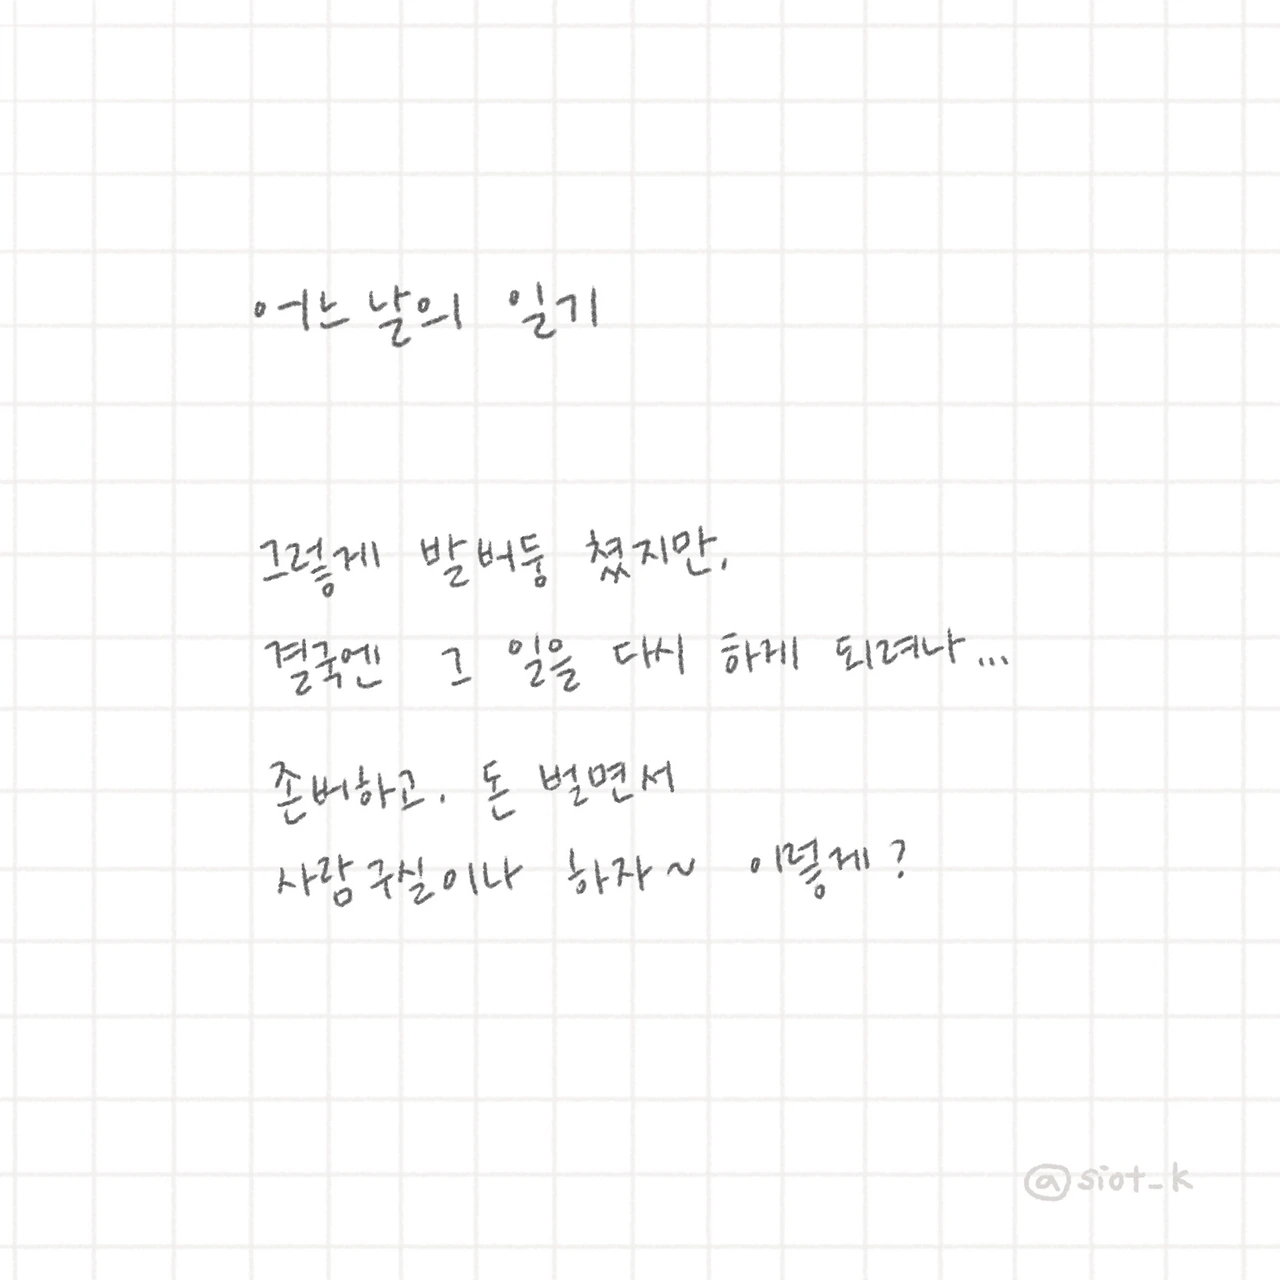 어느날의 일기
그렇게 발버둥 쳤지만,
결국엔 그 일을 다시 하게 되려나...
존버하고. 돈 벌면서
사람구실이나 하자~ 이렇게?
@siot_k